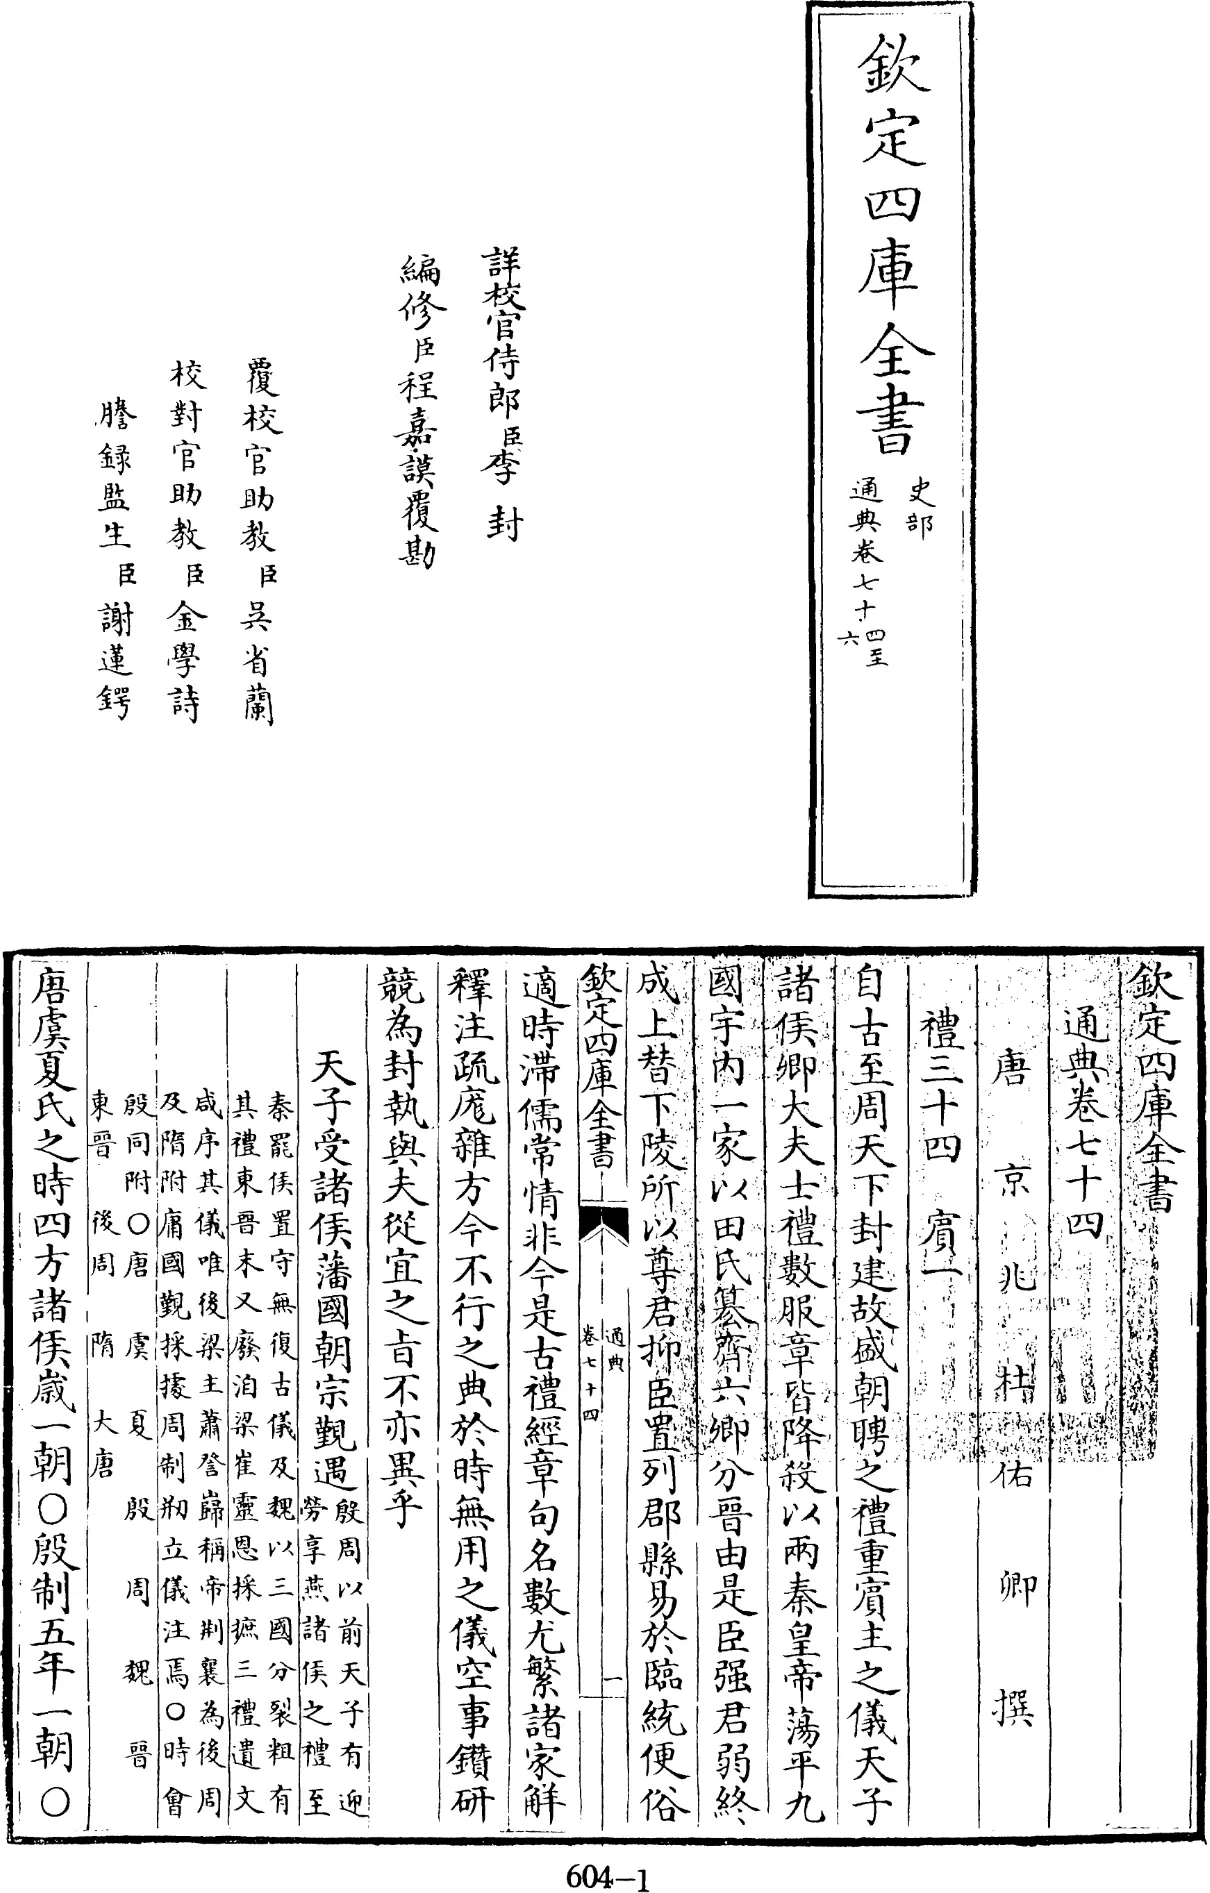 欽定四庫全書
史部
通典卷七十四至六
詳校官侍郎臣李封
編修臣程嘉謨覆勘
覆校官助教臣吳省蘭
校對官助教臣金學詩
謄録監生臣謝蓮鍔
欽定四庫全書
通典卷七十四
唐京兆杜佑卿撰
禮三十四 賓一
自古至周天下封建故盛朝聘之禮重賓主之儀天子
諸侯卿大夫士禮數服章皆降殺以兩秦皇帝蕩平九
國宇内一家以田氏簒齊六卿分晉由是臣强君弱終
成上替下陵所以尊君抑臣置列郡縣易於臨統便俗
欽定四庫全書
通典
卷七十四
一
適時滯儒常情非今是古禮經章句名數尤繁諸家解
釋注疏庬雜方今不行之典於時無用之儀空事鑽研
競為封執與夫從宜之旨不亦異乎
天子受諸侯藩國朝宗覲遇
殷周以前天子有迎
勞享燕諸侯之禮至
秦罷侯置守無復古儀及魏以三國分裂粗有
其禮東晉末又廢洎梁崔靈恩採摭三禮遺文
咸序其儀唯後梁主蕭詧歸稱帝荆襄為後周
及隋附庸國覲採據周制剏立儀注焉○時會
殷同附○唐虞夏殷周魏晉
東晉後周隋大唐
唐虞夏氏之時四方諸侯歳一朝○殷制五年一朝○
604-1